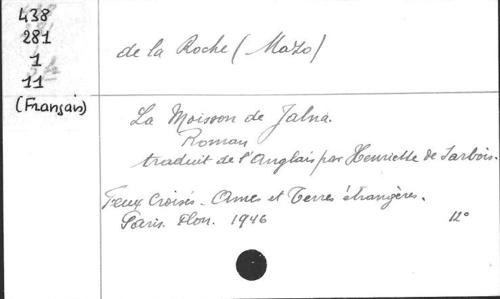 438
281
1
11
(Français)
de la Roche (Mazo)
La Moisson de Jalna.
Roman
traduit de l'Anglais par Henriette de Sarbois.
Feux Croisés - Ames et Terres étrangères.
Paris. Plon. 1946 12°